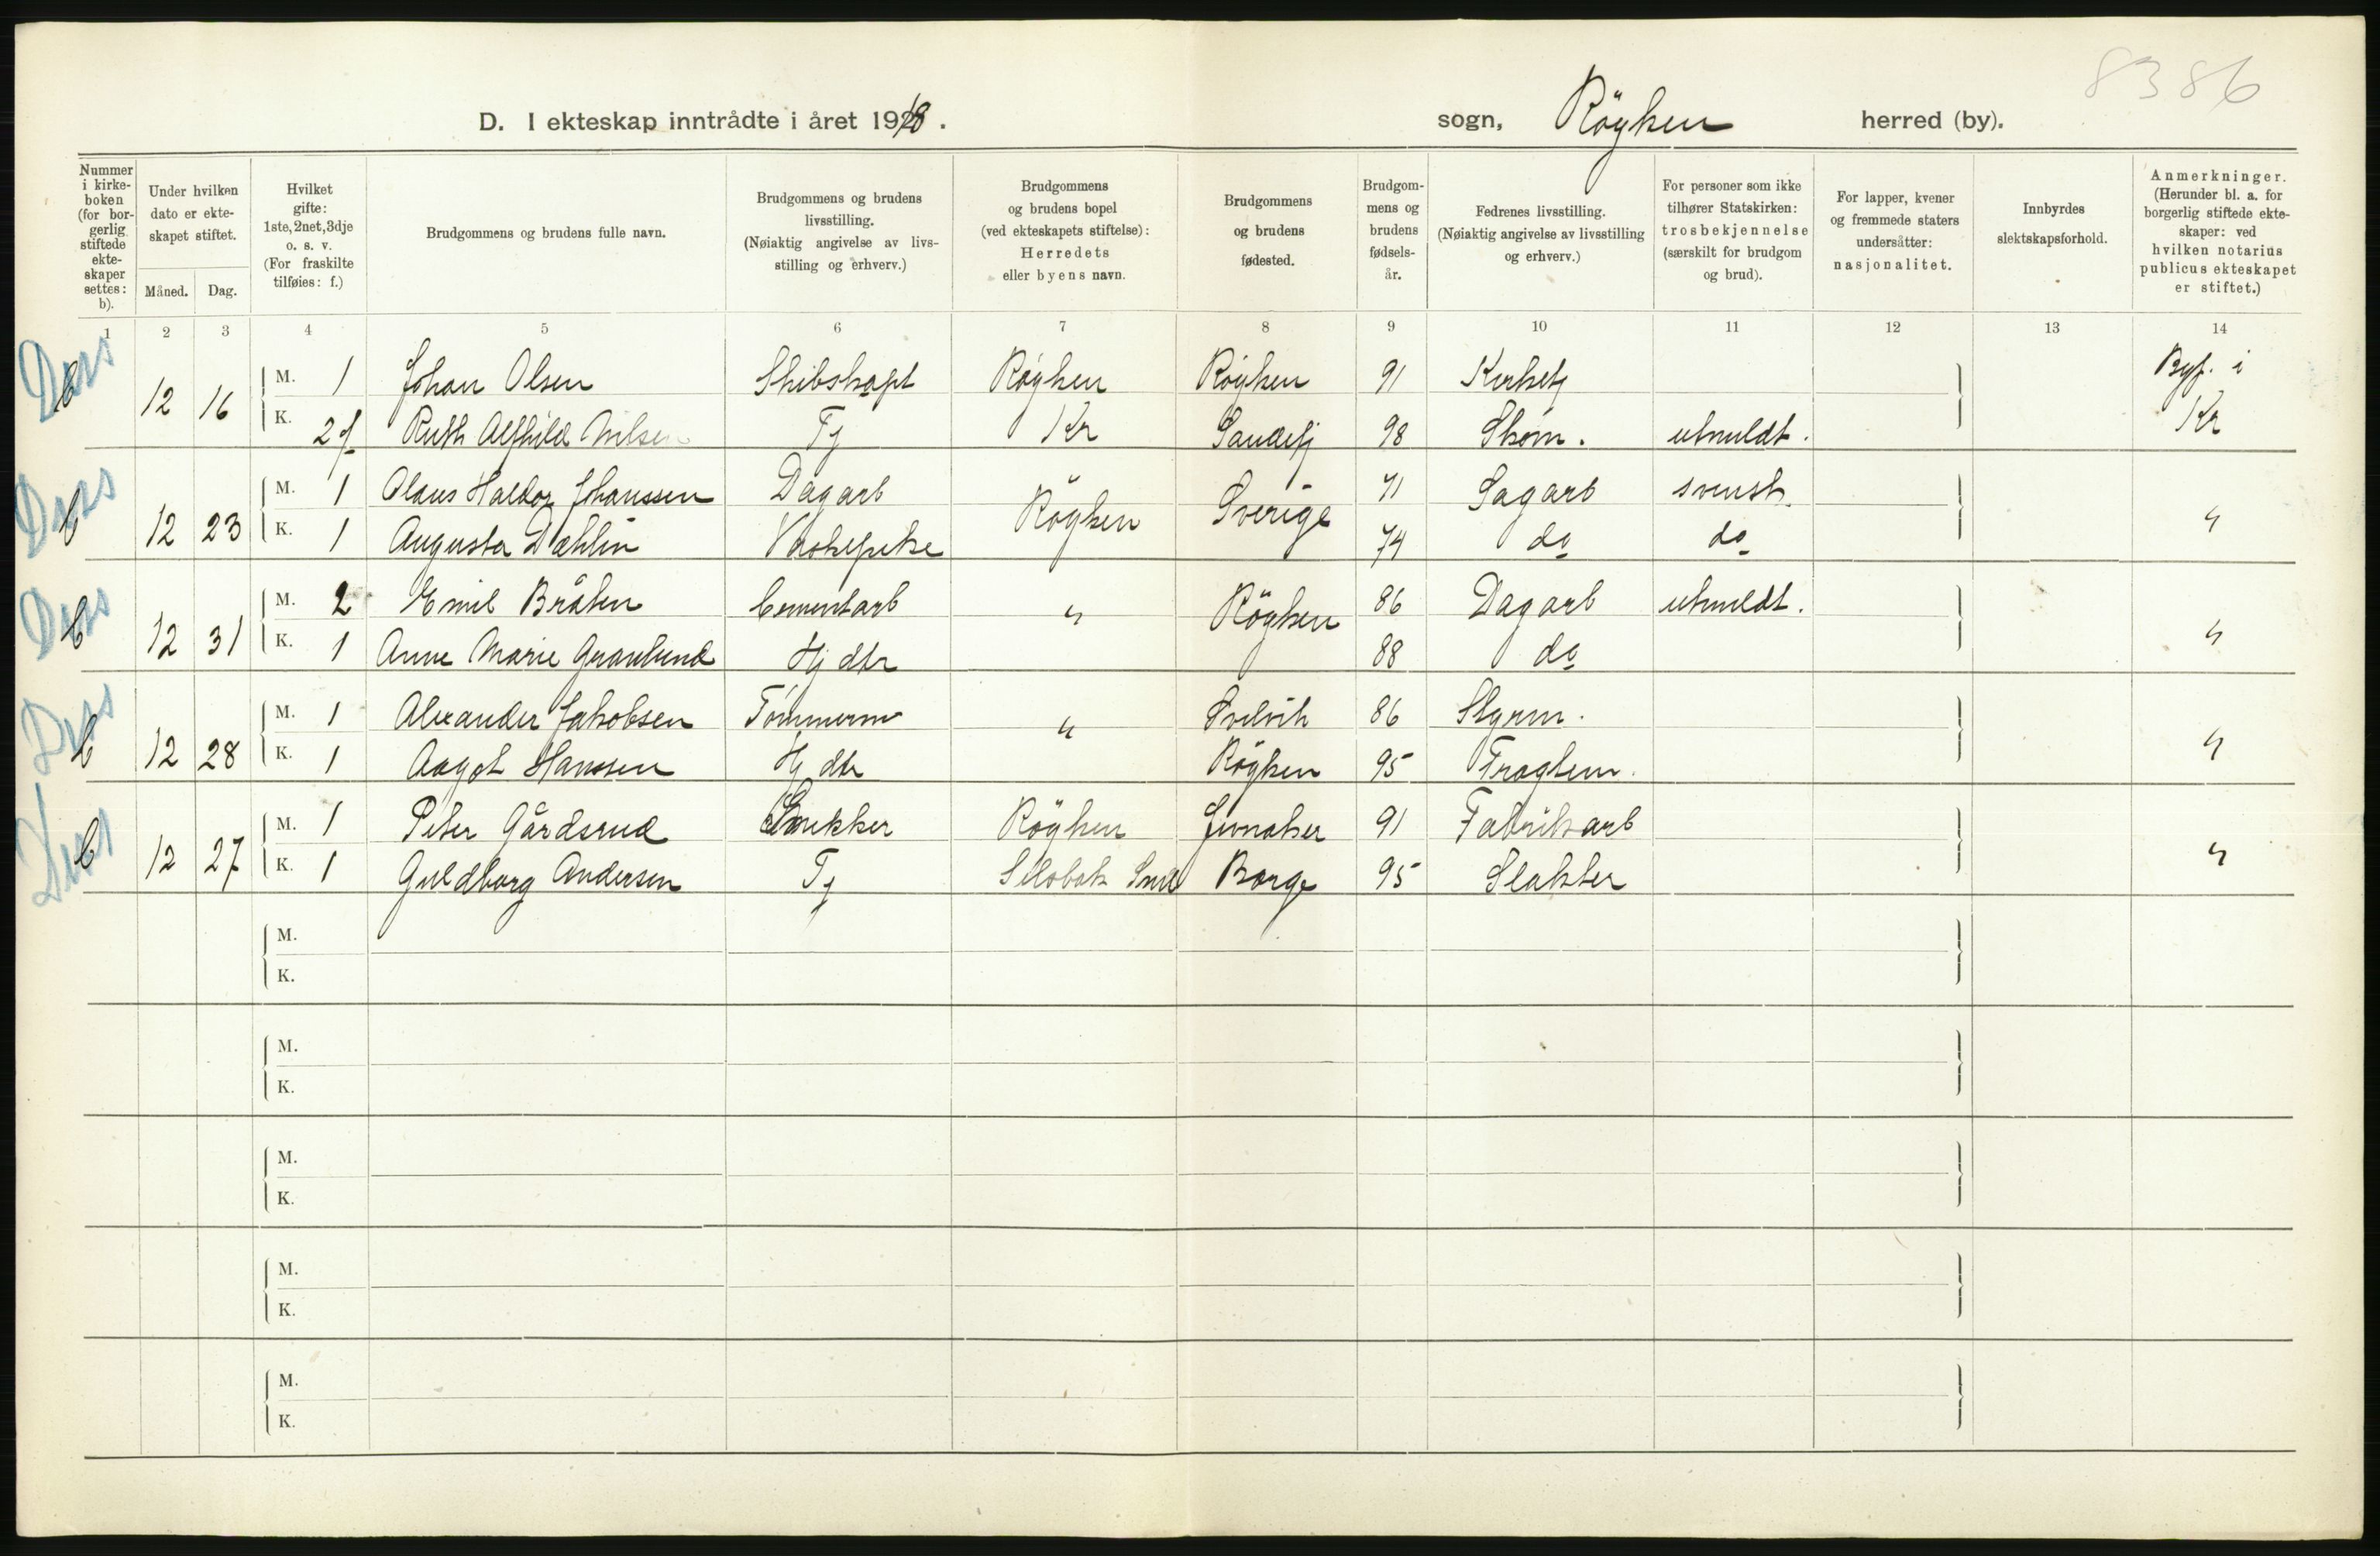 8386
D. I ekteskap inntrådte i året 1918. sogn, Röyken herred (by).
Nummer i kirke-boken (for bor-gerlig stiftede ekte-skaper settes: b).
Under hvilken dato er ekte-skapet stiftet.
Måned. Dag.
Hvilket gifte: 1ste, 2net, 3dje o. s. v. (For fraskilte tilføies: f.)
Brudgommens og brudens fulle navn.
Brudgommens og brudens livsstilling. (Nøiaktig angivelse av livs-stilling og erhverv.)
Brudgommens og brudens bopel (ved ekteskapets stiftelse): Herredets eller byens navn.
Brudgommens og brudens fødested.
Brudgom-mens og brudens fødsels-år.
Fedrenes livsstilling. (Nøiaktig angivelse av livsstilling og erhverv.)
For personer som ikke tilhører Statskirken: trosbekjennelse (særskilt for brudgom og brud).
For lapper, kvener og fremmede staters undersåtter: nasjonalitet.
Innbyrdes slektskapsforhold.
Anmerkninger. (Herunder bl. a. for borgerlig stiftede ekte-skaper: ved hvilken notarius publicus ekteskapet er stiftet.)
1 2 3 4 5 6 7 8 9 10 11 12 13 14
b 12 16 M. 1 Johan Olsen Skibskapt Röyken Röyken 91 Kirketj Byf. i
K. 2 f Ruth Alfhild Nilsen Tj Kr Sandefj 98 Skom. utmeldt. Kr
b 12 23 M. 1 Olaus Haldor Johanssen Dagarb Röyken Sverige 71 Sagarb svensk "
K. 1 Augusta Dæhlin 74 do do
b 12 31 M. 2 Emil Bråten Cementarb " Röyken 86 Dagarb utmeldt. "
K. 1 Anne Marie Granlund Hj dtr 88 do
b 12 28 M. 1 Alexander Jakobsen Tömmerm " Svelvik 86 Styrm. "
K. 1 Aagot Hanssen Hj dtr Röyken 95
b 12 27 M. 1 Peter Gårdsrud Snekker Röyken Jevnaker 91 Fabrikarb "
K. 1 Guldborg Andersen Tj Borge 95 Slakter
M.
K.
M.
K.
M.
K.
M.
K.
M.
K.